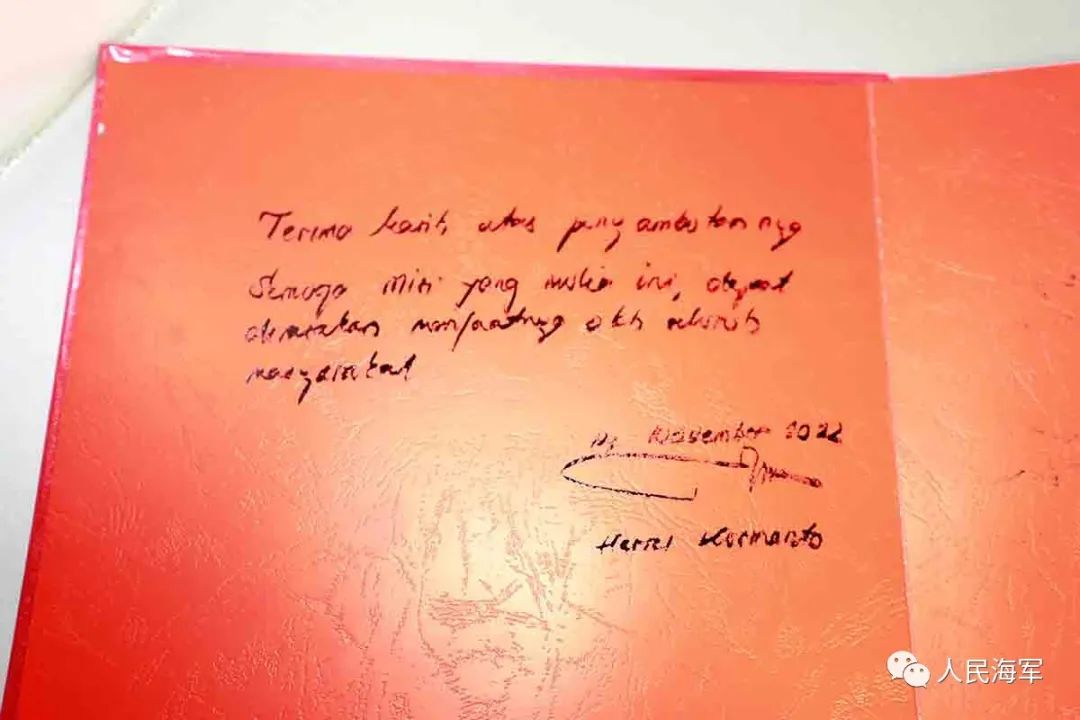 Terima kasih atas penyambutannya
Semoga misi yang mulia ini, dapat
dirasakan manfaatnya oleh seluruh
masyarakat
November 2022
Hermanto
人民海军